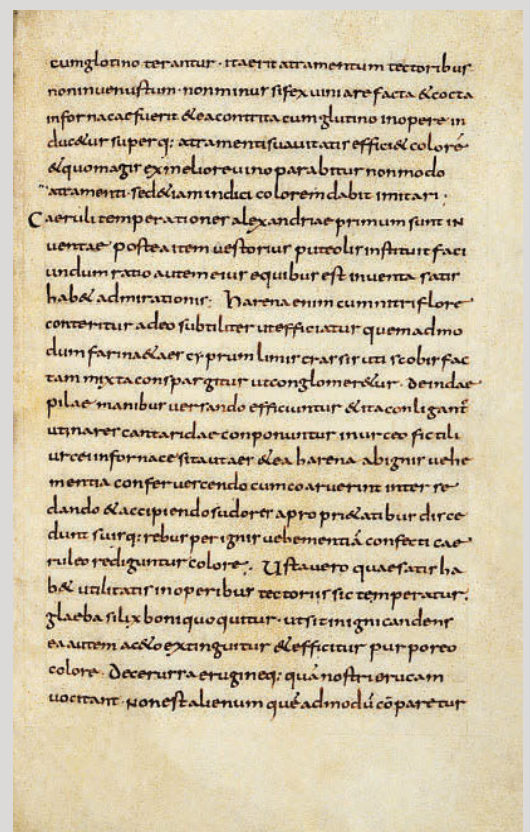 cum glutino terantur · ita erit atramentum tectoribus
non inuenustum · non minus si fex uini arefacta & cocta
in fornacae fuerit & ea contrita cum glutino in opere in
duc&ur super q: atramenti suauitatis effici& colorē
& quo magis ex meliore uino parabitur non modo
atramenti · sed & iam indici colorem dabit imitari ·
Caeruli temperationes alexandriae primum sunt in
uentae postea item uestorius puteolis instituit faci
undum ratio autem eius e quibus est inuenta satis
hab& admirationis: harena enim cum nitri flore
conteritur adeo subtiliter ut efficiatur quem ad mo
dum farina & aer cyprum limis crassis uti scobis fac
tam mixta conspargitur ut conglomer&ur · deindae
pilae manibus uersando efficiuntur & ita conligant̄
ut inarescant aridae conponuntur in urceo fictili
urcei in fornace sita ut aer & ea harena ab ignis uehe
mentia conferuescendo cum coaruerint inter se
dando & accipiendo sudores a propri&atibus disce
dunt suisq: rebus per ignis uehementiā confecti cae
ruleo rediguntur colore: Usta uero quae satis ha
b& utilitatis in operibus tectoriis sic temperatur:
glaeba silix boni quoquitur · ut sit in igni candens
ea autem ac&o extinguitur & efficitur purporeo
colore · de cerussa erugineq: quā nostri erucam
uocitant · non est alienum quēadmodū cōparetur